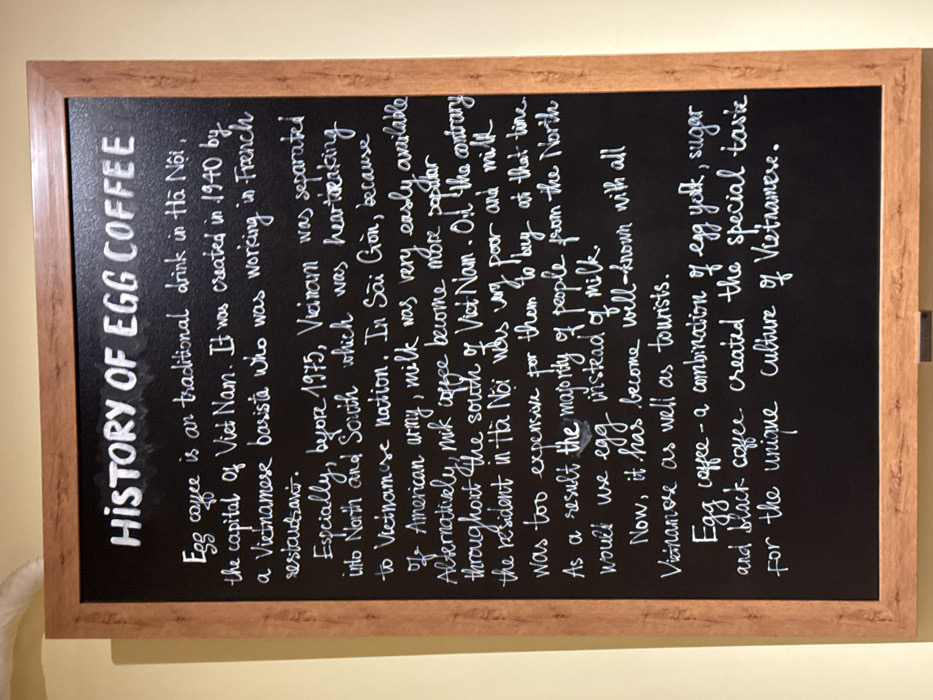 HiSTORY OF EGG COFFEE
Egg coffee is an traditional drink in Hà Nội,
the capital of Viet Nam. It was created in 1940 by
a Vietnamese barista who was working in French
restaurant.
Especially, before 1975, Vietnam was separated
into North and South which was heartbreaking
to Vietnamese nation. In Sài Gòn, because
of American army, milk was very easily available
Alternatively, milk coffee become more popular
throughout the south of Viet Nam. On the contrary
the resident in Hà Nội was very poor and milk
was too expensive for them to buy at that time.
As a result the majority of people from the North
would use egg instead of milk.
Now, it has become well-known with all
Vietnamese as well as tourists.
Egg coffee - a combination of egg yolk, sugar
and black coffee created the special taste
For the unique culture of Vietnamese.